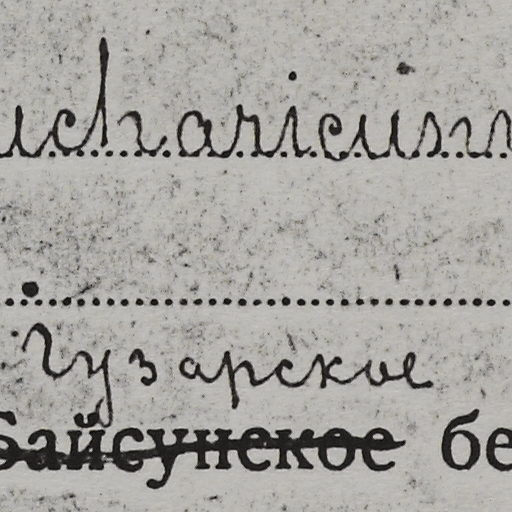 ucharicum
Гузарское
Байсунское бе